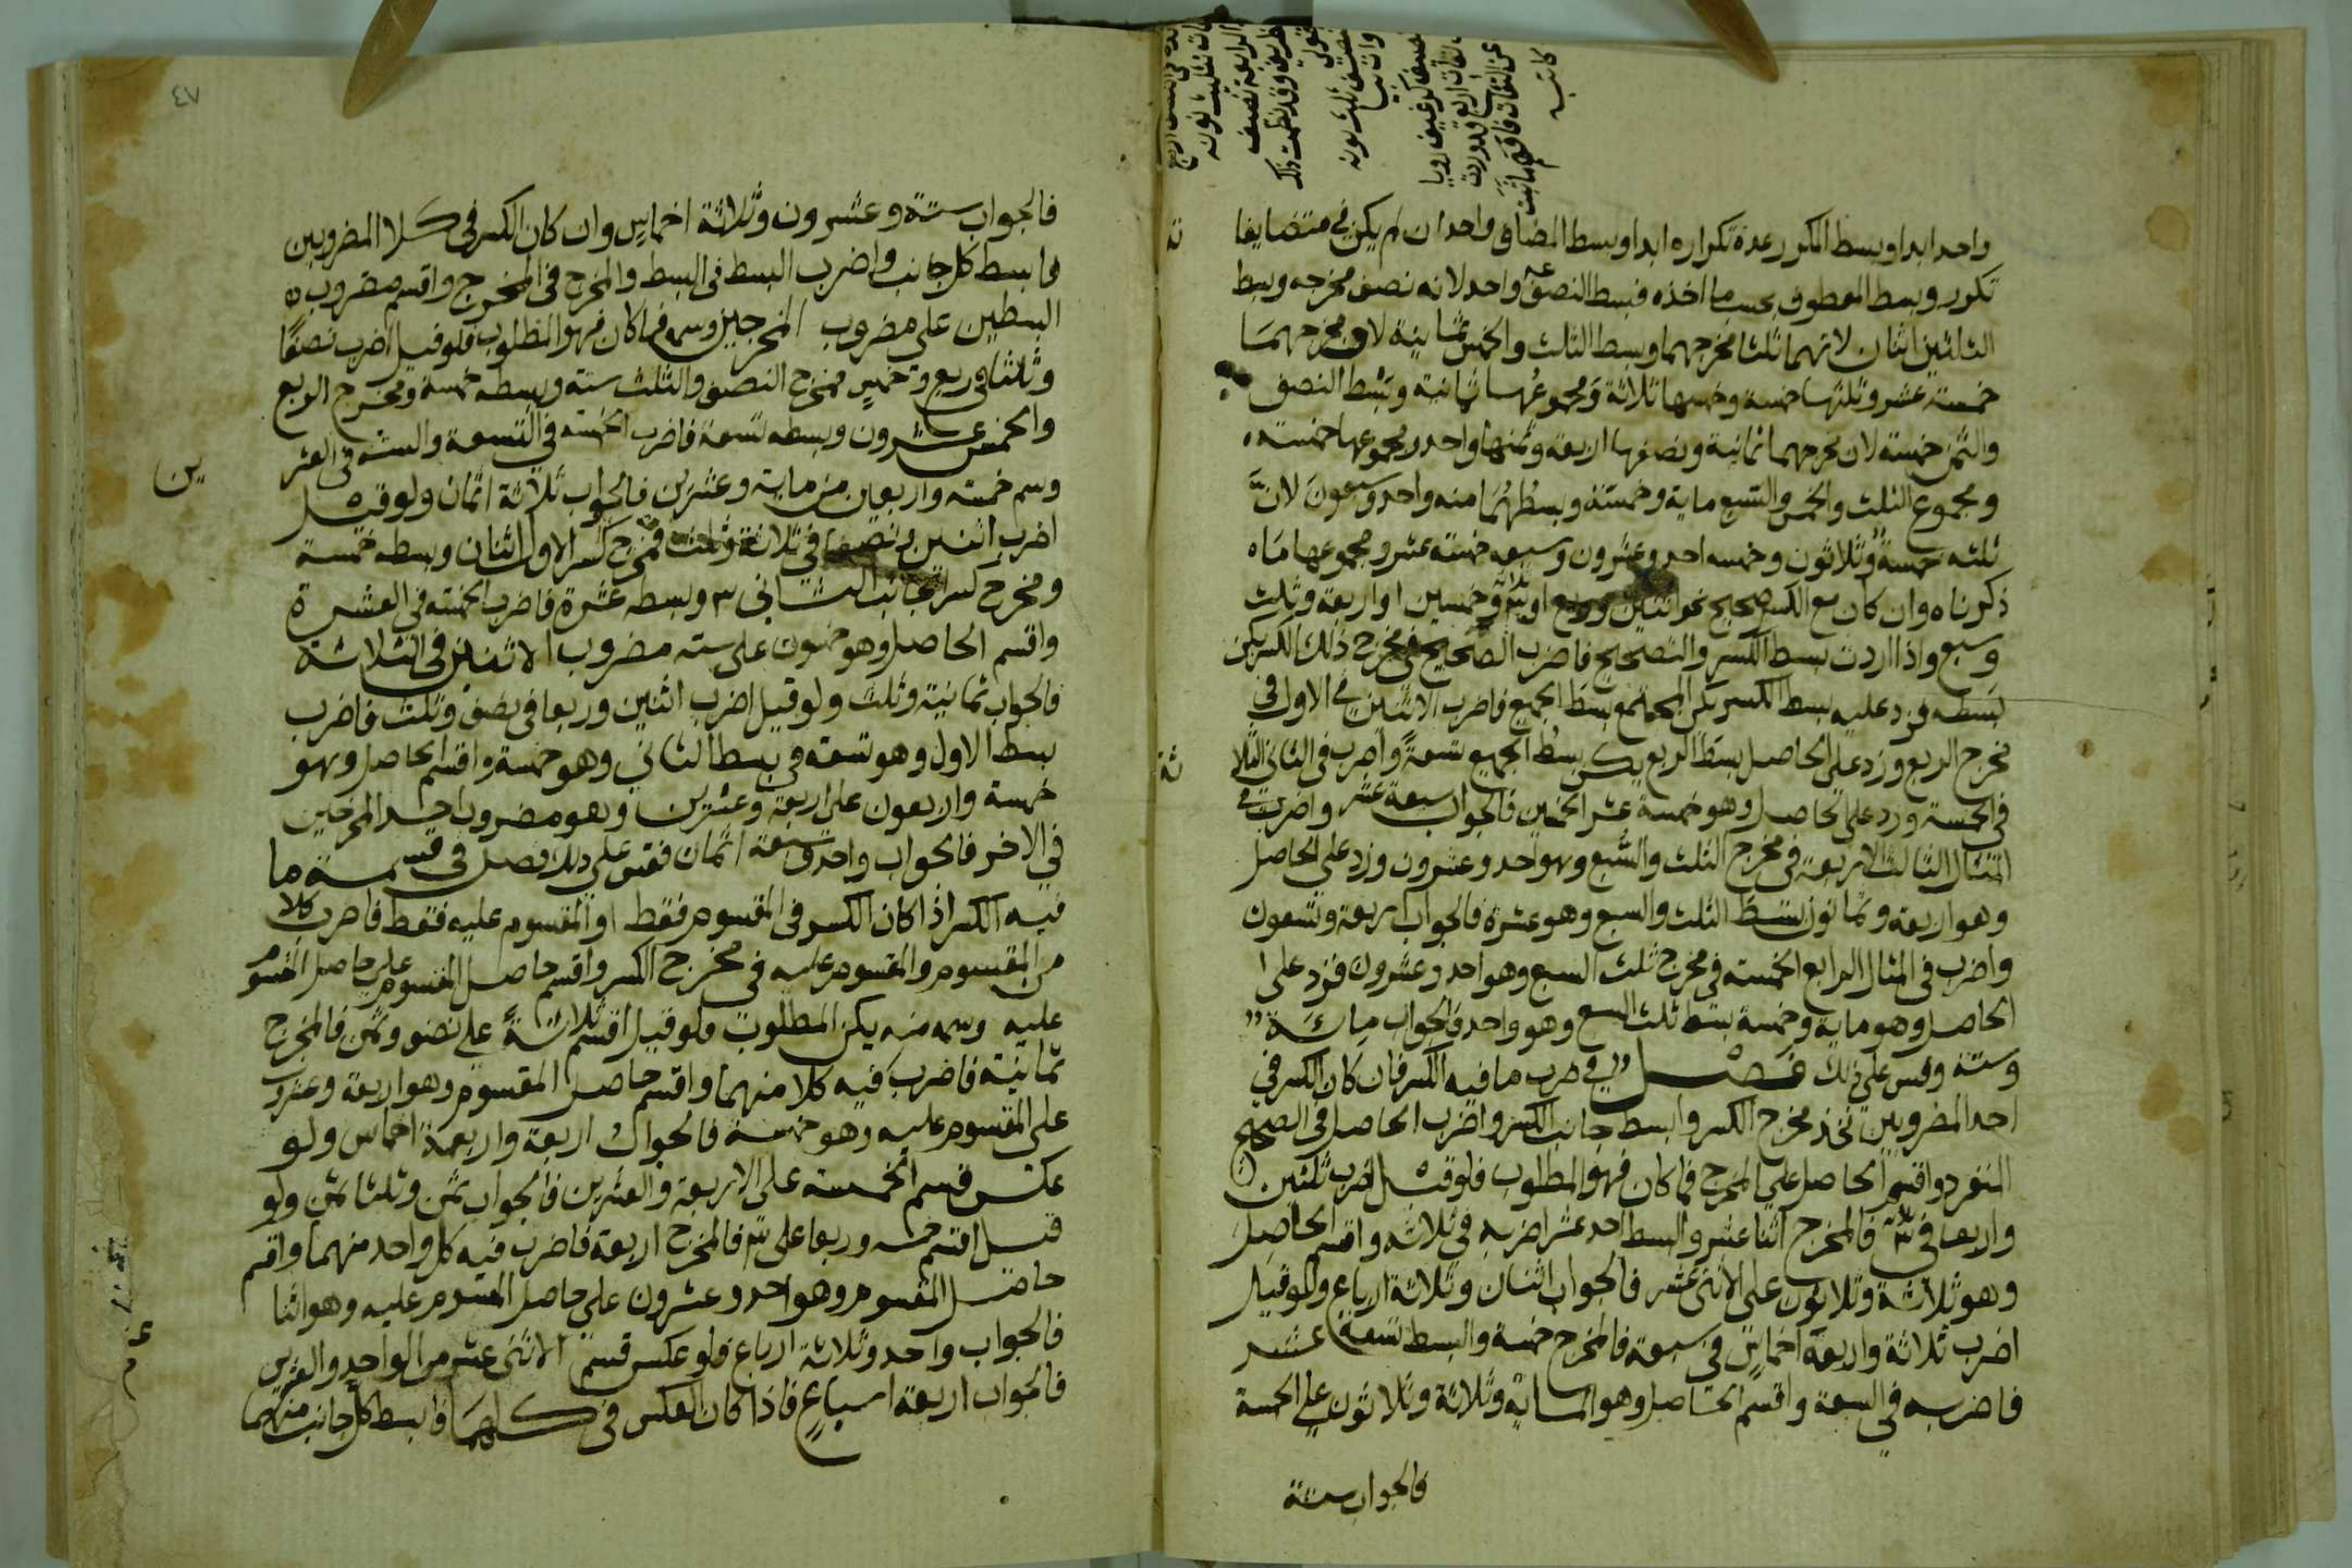 واحد ابدا وبسط المكرر عدة تكراره ابدا وبسط المضاف واحد ان لم يكن في متضايفا
ته
تكرر وبسط المعطوف بحسب ما اخذه فبسط النصف واحد لانه نصف مخرجه وبسط
الثلثين اثنان لانهما ثلثا مخرجهما وبسط الثلث والخمس ثمانية لان مخرجهما
خمسة عشر وثلثها خمسة وخمسها ثلاثة ومجموعها ثمانية وبسط النصف
والثمن خمسة لان مخرجهما ثمانية ونصفها اربعة وثمنها واحد ومجموعها خمسة
ومجموع الثلث والخمس والسبع ماية وخمسة وبسطها منه واحد وسبعون لان
ثلثه خمسة وثلاثون وخمسه احد وعشرون وسبعه خمسة عشر ومجموعها ما
ذكرناه وان كان مع الكسر صحيح نحو اثنين وربع او ثلاثة وخمسين او اربعة وثلث
وسبع واذا اردت بسط الكسر والصحيح فاضرب الصحيح في مخرج ذلك الكسر يكن
بسطه فزد عليه بسط الكسر يكن المجتمع بسط الجميع فاضرب الاثنين في الاول في
مخرج الربع وزد على الحاصل بسط الربع يكن بسط الجميع تسعة واضرب في الثاني الثلا
ثة
في الخمسة وزد على الحاصل وهو خمسة عشر الخمسين فالجواب سبعة عشر واضرب في
المثال الثالث الاربعة في مخرج الثلث والسبع وهو احد وعشرون وزد على الحاصل
وهو اربعة وثمانون بسط الثلث والسبع وهو عشرة فالجواب اربعة وتسعون
واضرب في المثال الرابع الخمسة في مخرج ثلث السبع وهو احد وعشرون فزد على
الحاصل وهو ماية وخمسة بسط ثلث السبع وهو واحد فالجواب ماية
وستة وقس على ذلك فصل في ضرب ما فيه الكسر فان كان الكسر في
احد المضروبين فخذ مخرج الكسر وابسط جانب الكسر واضرب الحاصل في الصحيح
المنفرد واقسم الحاصل على المخرج فما كان فهو المطلوب فلو قيل اضرب ثلثين
واربعا في فالمخرج اثنا عشر والبسط احد عشر اضربه في ثلاثة واقسم الحاصل
وهو ثلاثة وثلاثون على الاثنى عشر فالجواب اثنان وثلاثة ارباع ولو قيل
اضرب ثلاثة واربعة اخماس في سبعة فالمخرج خمسة والبسط تسعة عشر
فاضربه في السبعة واقسم الحاصل وهو الماية وثلاثة وثلاثون على الخمسة
فالجواب ستة
٤٧
فالجواب ستة وعشرون وثلاثة اخماس وان كان الكسر في كلا المضروبين
فابسط كل جانب واضرب البسط في البسط والمخرج في المخرج واقسم مضروب
البسطين على مضروب المخرجين وسمه فما كان فهو المطلوب فلو قيل اضرب نصفا
وثلثا في ربع وخمس فمخرج النصف والثلث ستة وبسطه خمسة ومخرج الربع
والخمس عشرون وبسطه تسعة فاضرب الخمسة في التسعة والستة في العشر
ين
وسم خمسة واربعين من ماية وعشرين فالجواب ثلاثة اثمان ولو قيل
اضرب اثنين ونصفا في ثلاثة وثلث فمخرج كسر الاول اثنان وبسطه خمسة
ومخرج كسر الجانب الثاني ٣ وبسطه عشرة فاضرب الخمسة في العشرة
واقسم الحاصل وهو خمسون على ستة مضروب الاثنين في الثلاثة
فالجواب ثمانية وثلث ولو قيل اضرب اثنين وربعا في نصف وثلث فاضرب
بسط الاول وهو تسعة في بسط الثاني وهو خمسة واقسم الحاصل وهو
خمسة واربعون على اربعة وعشرين وهو مضروب احد المخرجين
في الاخر فالجواب واحد وسبعة اثمان فقس على ذلك فصل في قسمة ما
فيه الكسر اذا كان الكسر في المقسوم فقط او المقسوم عليه فقط فاضرب كلا
من المقسوم والمقسوم عليه في مخرج الكسر واقسم حاصل المقسوم على حاصل المقسوم
عليه وسمه منه يكن المطلوب فلو قيل اقسم ثلاثة على نصف وثمن فالمخرج
ثمانية فاضرب فيه كلا منهما واقسم حاصل المقسوم وهو اربعة وعشرون
على المقسوم عليه وهو خمسة فالجواب اربعة واربعة اخماس ولو
عكس فسم الخمسة على الاربعة والعشرين فالجواب ثمن وثلثا ثمن ولو
قيل اقسم خمسة وربعا على فالمخرج اربعة فاضرب فيه كل واحد منهما واقسم
حاصل المقسوم وهو احد وعشرون على حاصل المقسوم عليه وهو اثنا
عشر
فالجواب واحد وثلاثة ارباع فلو عكس قسم الاثنى عشر من الواحد والعشرين
فالجواب اربعة اسباع فاذا كان العكس في كلاهما فابسط كل جانب منهما